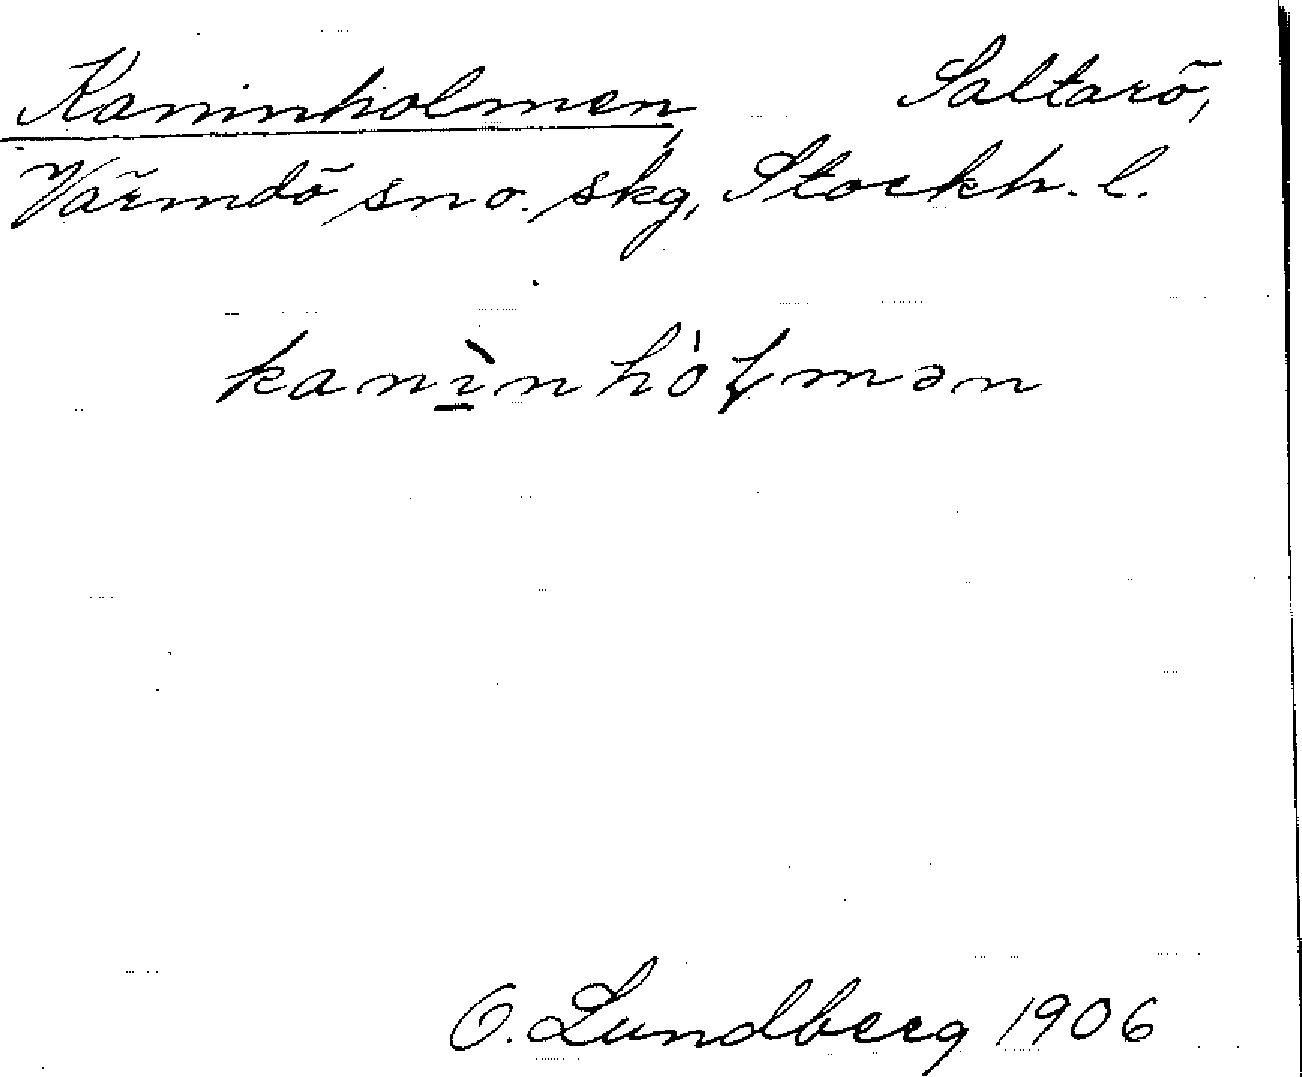 Kaninholmen, Saltarö,
Värmdö sn o. skg, Stockh. l.
kanìnhólmən
O. Lundberg 1906